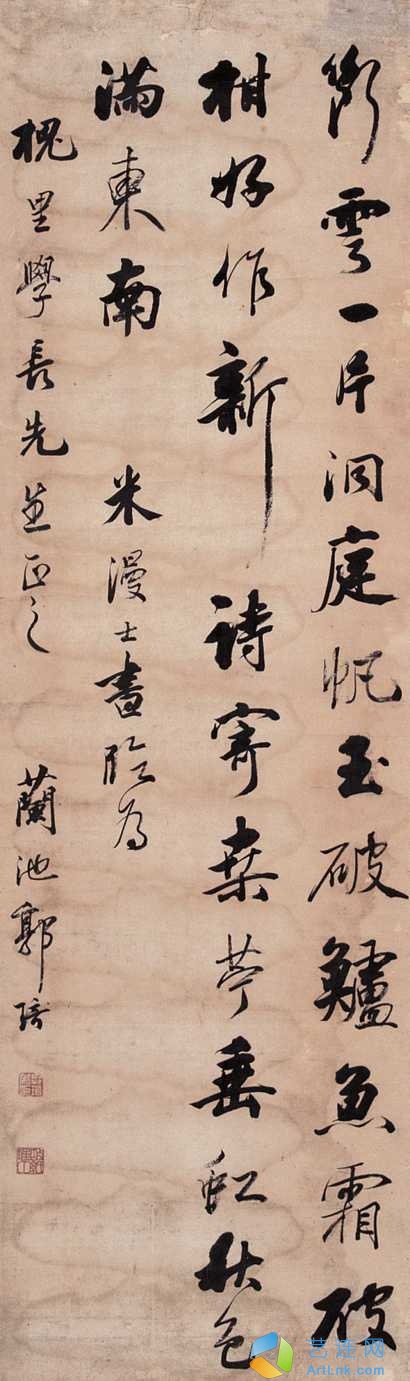 断雲一片洞庭帆玉破鱸魚霜破
柑好作新詩寄桒苧垂虹秋色
滿東南 米漫士書臨為
槐里學長先生正之 蘭池郭
艺连网
ArtLnk.com